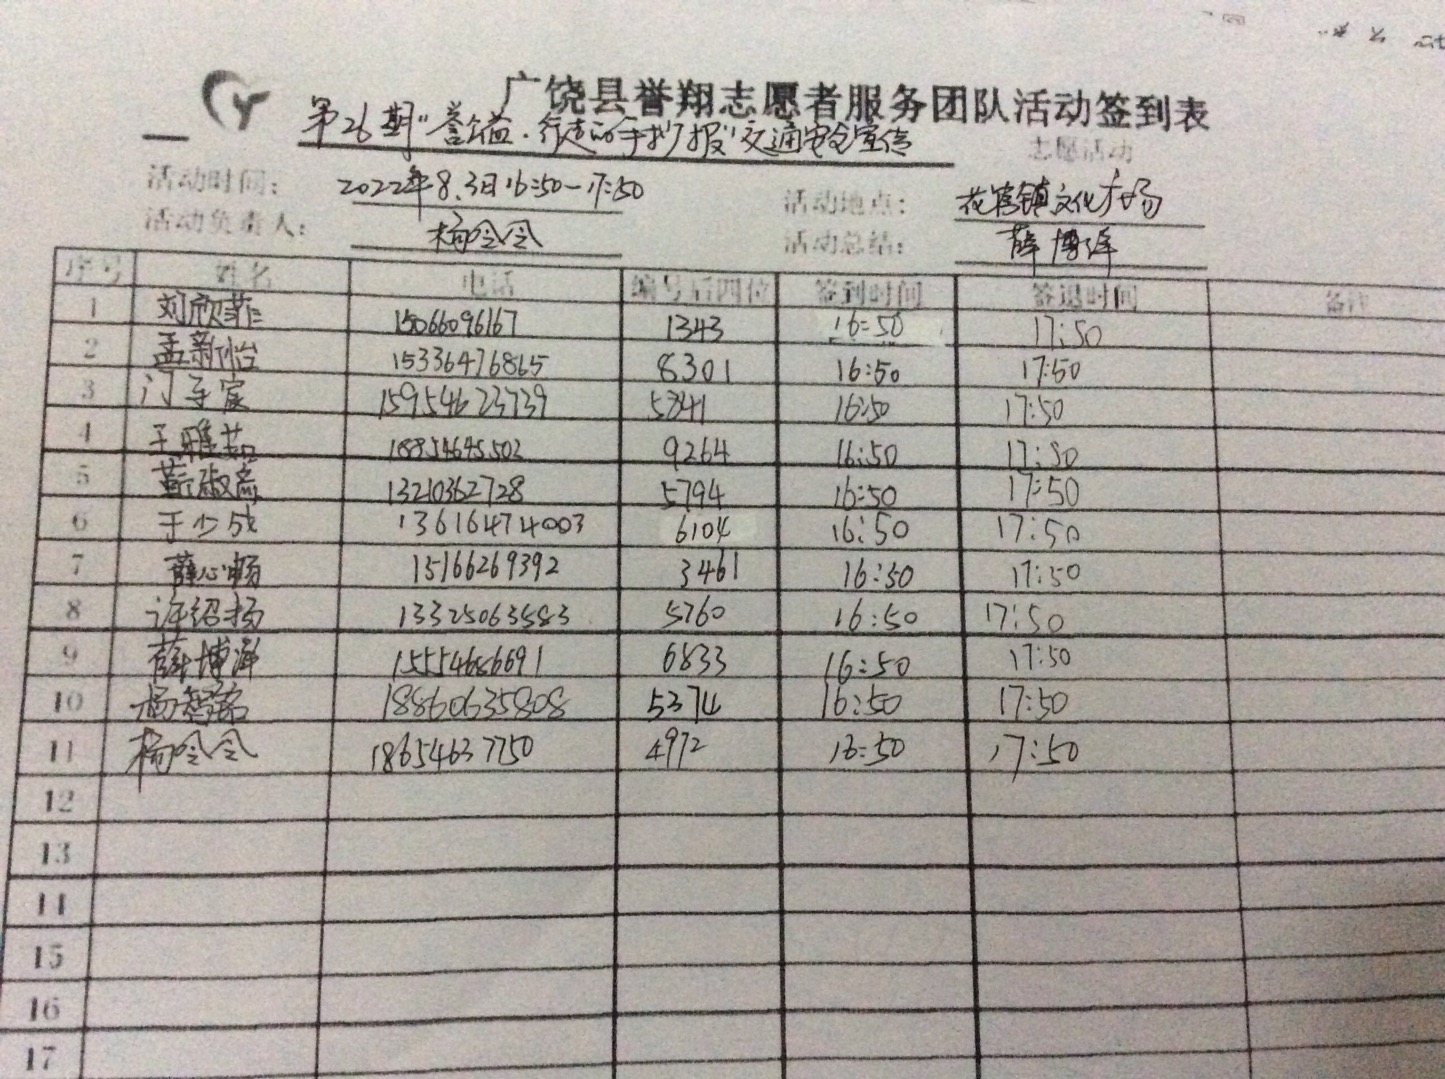 广饶县誉翔志愿者服务团队活动签到表
第26期"誉益·行走的手抄报"交通安全宣传 志愿活动
活动时间: 2022年8.3日16:50-17:50 活动地点: 花官镇文化广场
活动负责人: 杨令令 活动总结: 薛博泽
序号 姓名 电话 编号后四位 签到时间 签退时间 备注
1 刘欣菲 15066096167 1343 16:50 17:50
2 孟新怡 15336476865 8301 16:50 17:50
3 门子宸 15954623739 5841 16:50 17:50
4 王雅茹 18854645502 9264 16:50 17:50
5 靳淑 13210362728 5794 16:50 17:50
6 于少成 13616474003 6104 16:50 17:50
7 薛心畅 15166269392 3461 16:50 17:50
8 许绍扬 13325063583 5760 16:50 17:50
9 薛博泽 15554686691 6833 16:50 17:50
10 杨智茗 18860635808 5374 16:50 17:50
11 杨令令 18654637750 4972 16:50 17:50
12
13
14
15
16
17